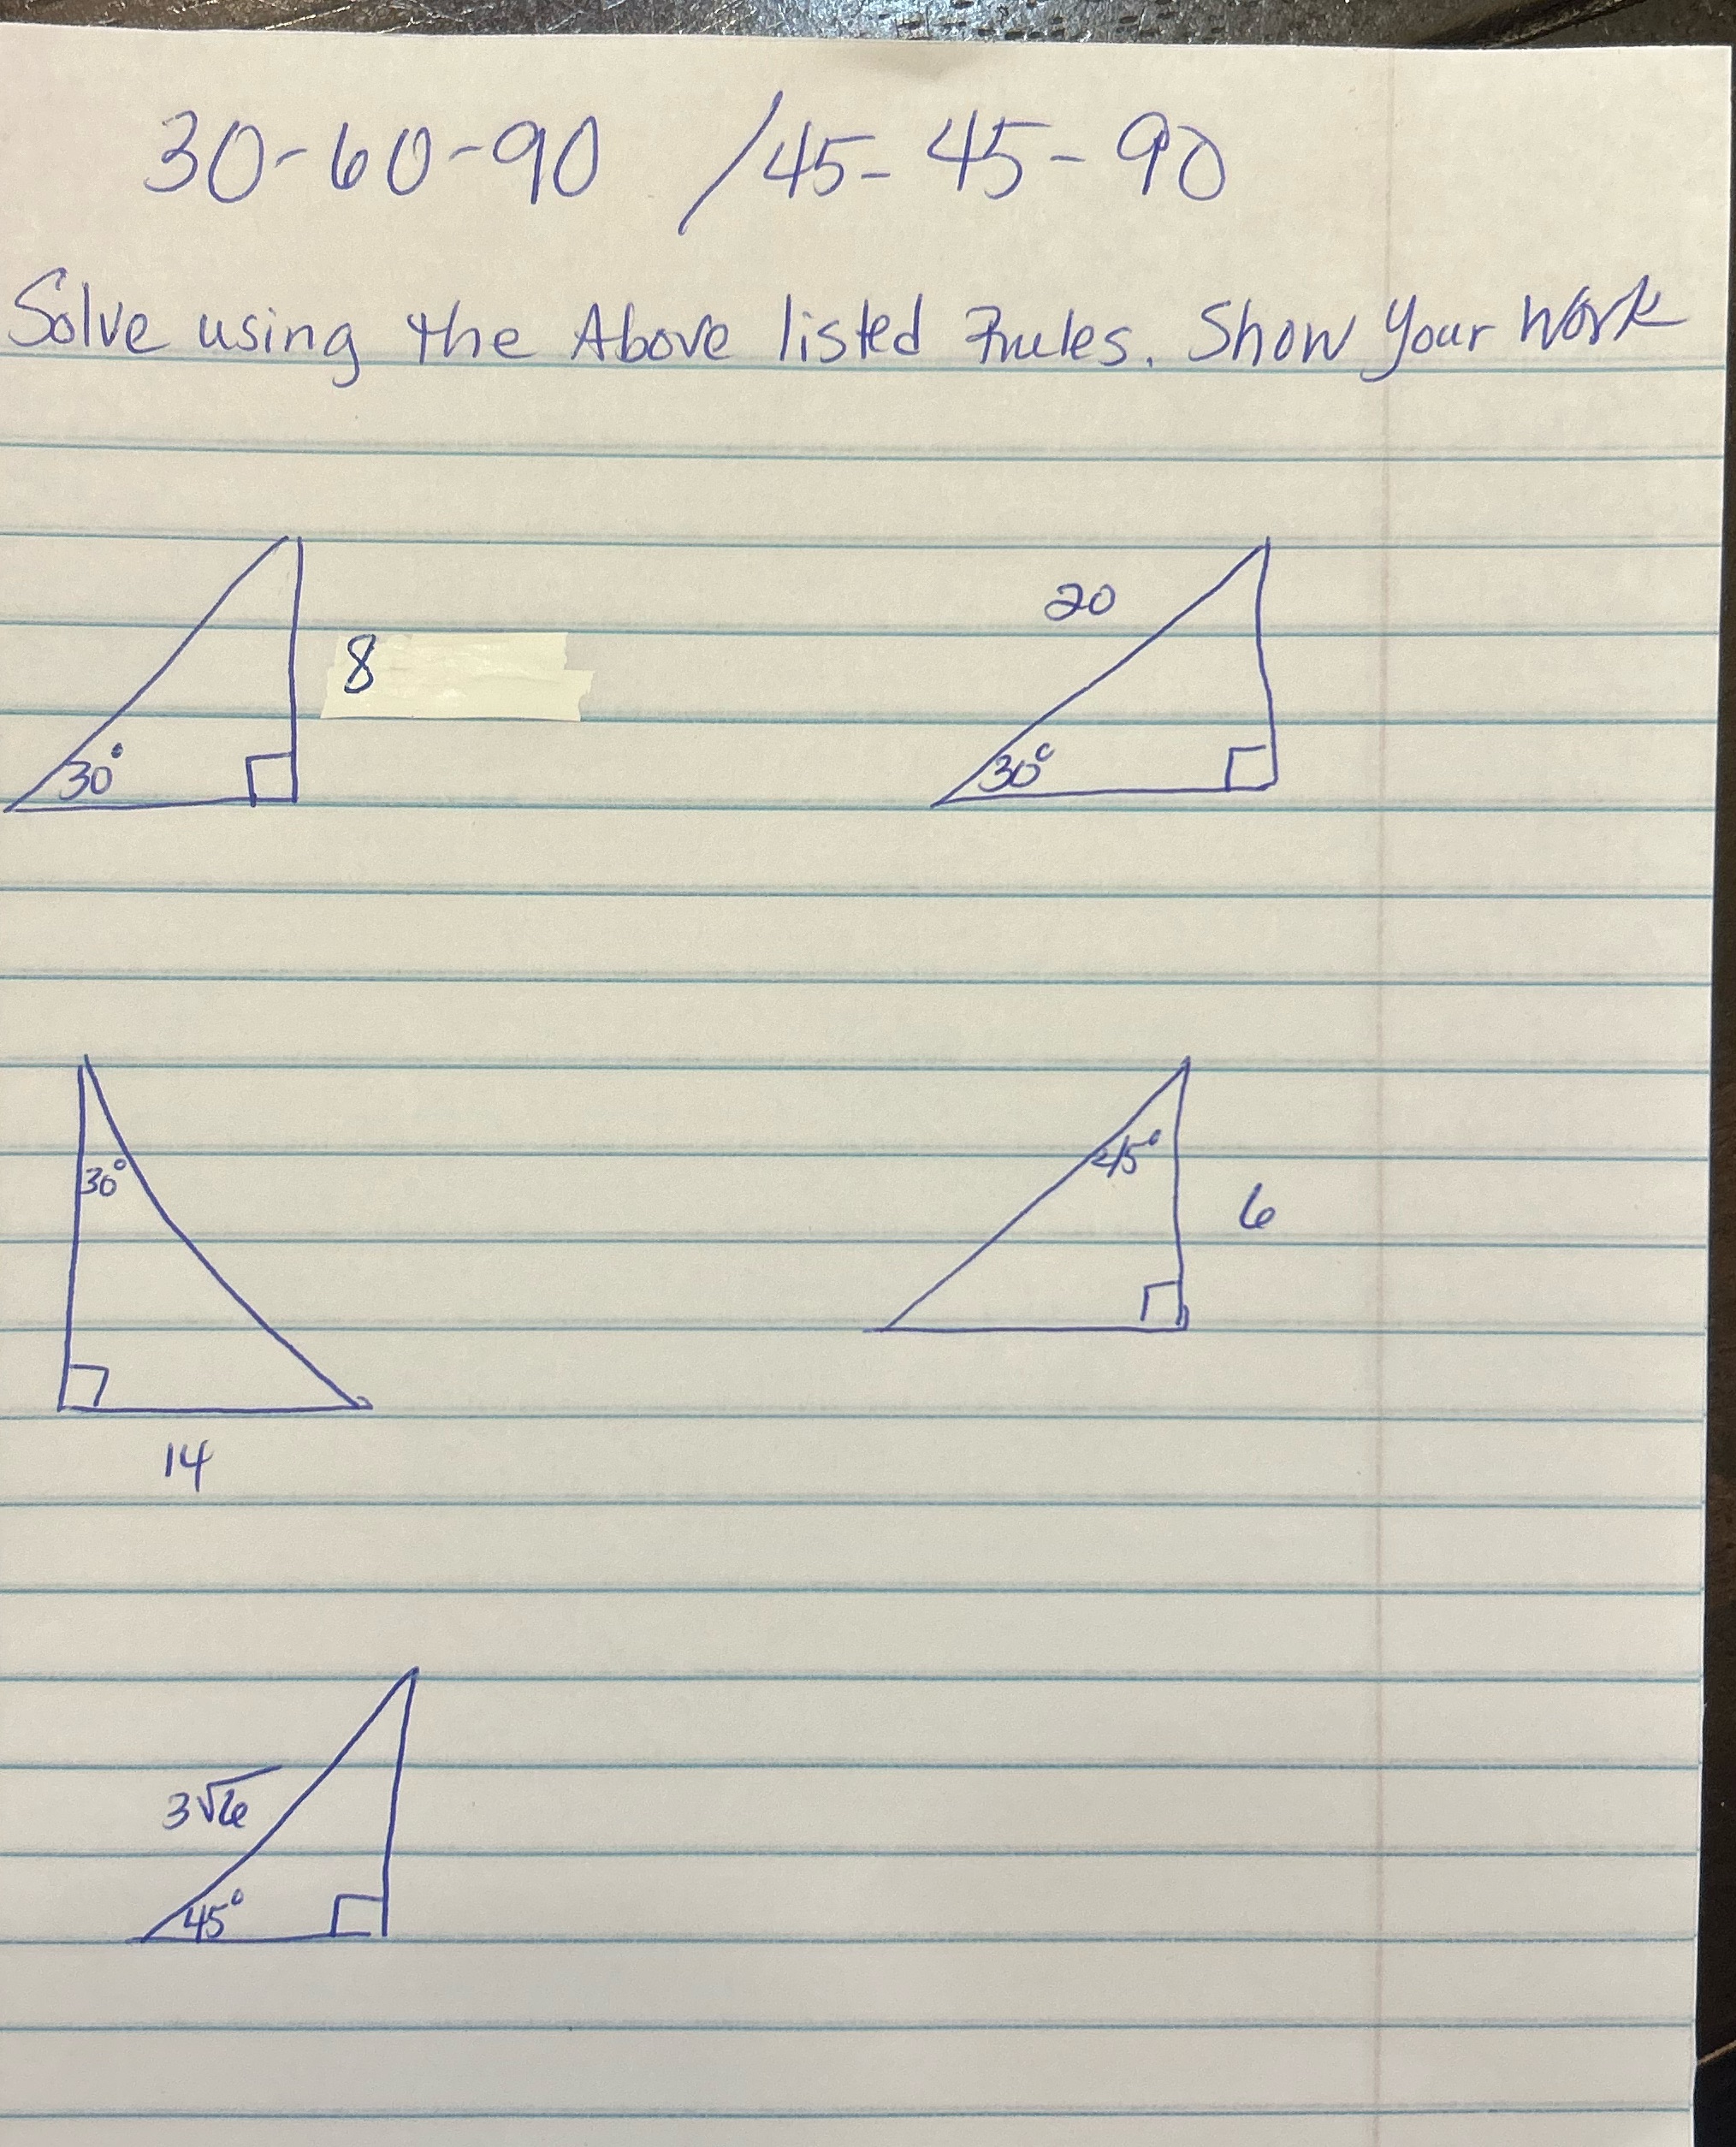 30-60-90 / 45-45-90
Solve using the Above listed Rules. Show Your Work
8
30°
20
30°
30°
14
45°
6
3√6
45°